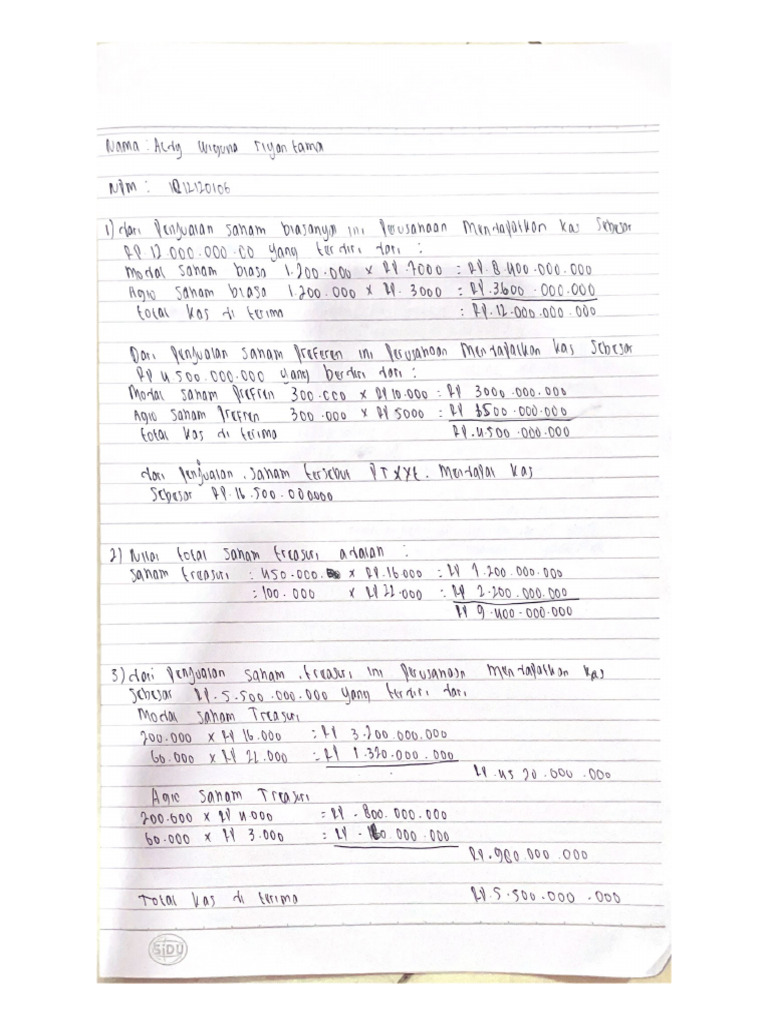 Nama : Aldy Wiguna Tiyantama
NPM : 1212120106
1) dari Penjualan saham biasanya ini Perusahaan Mendapatkan kas Sebesar
RP 12.000.000.00 yang terdiri dari :
Modal saham biasa 1.200.000 x RP. 7000 = RP. 8 400.000.000
Agio saham biasa 1.200.000 x RP. 3000 = RP. 3600.000.000
total kas di terima : RP. 12.000.000.000
Dari Penjualan saham Preferen ini Perusahaan Mendapatkan kas Sebesar
RP 4 500.000.000 yang berdiri dari :
Modal saham Prefren 300.000 x RP 10.000 = RP 3000.000.000
Agio saham Prefren 300.000 x RP 5000 = RP 1500.000.000
total kas di terima RP. 4.500.000.000
dari Penjualan saham tersebut PT XYZ. Mendapat kas
Sebesar RP. 16.500.000000
2) Nilai total saham treasuri adalah :
saham treasuri : 450.000 x RP. 16.000 = RP 7.200.000.000
= 100.000 x RP 22.000 = RP 2.200.000.000
RP 9.400.000.000
3) dari Penjualan saham treasuri ini Perusahaan Mendapatkan kas
Sebesar RP. 5.500.000.000 yang terdiri dari
Modal saham Treasuri
200.000 x RP 16.000 = RP 3.200.000.000
60.000 x RP 22.000 = RP 1.320.000.000
RP. 45 20.000.000
Agio saham Treasuri
200.000 x RP 4.000 = RP. 800.000.000
60.000 x RP 3.000 = RP. 180.000.000
RP. 980.000.000
Total kas di terima RP. 5.500.000.000
SiDU